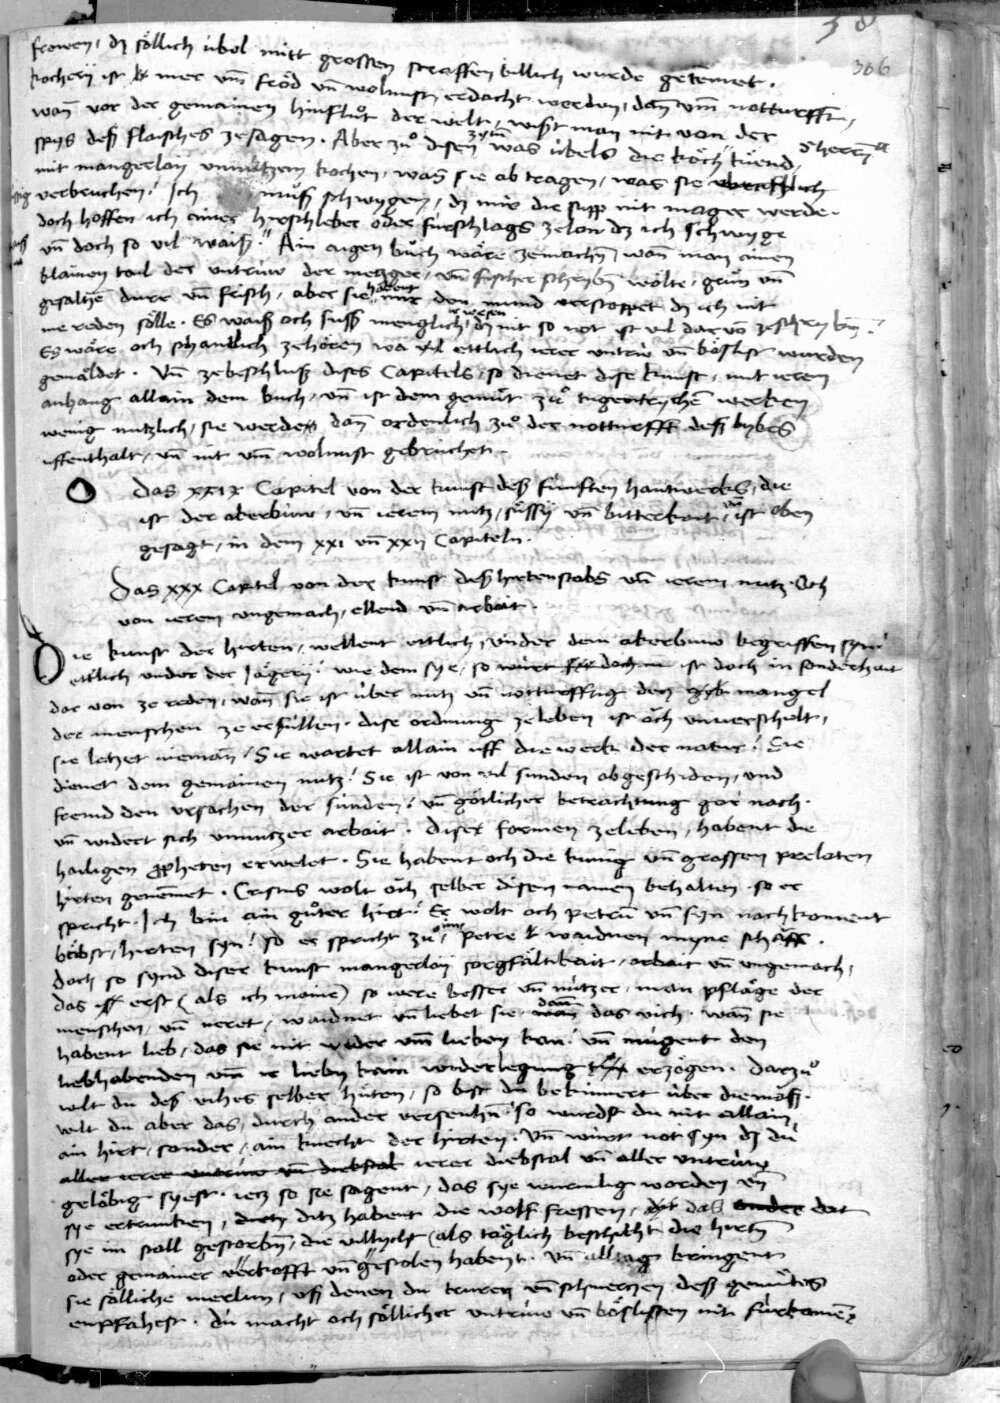 58
306
frowen, dz söllich übel mitt grossen straffen billich wurde getemet.
kochery ist mer um fröd uñ wolnust erdacht worden, dañ um notturfft,
wañ vor der gemainen hinfluͦt der welt, wist man nit von der
spys deß flaisches zesagen. Aber zuͦ disen zyten was übels die köch tüend
mit mangerlay unnützem kochen, was sie ab tragen, was sie
verbruchen! Ich muͦß schwygen, dz mir die supp nit mager werde.
doch hoffen ich aines hirschleber oder fürschlags zelon dz ich schwyge
uñ doch so vil waiß. Ain aigen buͦch wäre zemachen, wañ man ainen
klainen tail der untrüw der metzger, uñ fischer schryben wölte, grün uñ
gesaltzē durr uñ frisch, aber sie habent mir den mund verstoppet dz ich nit
me reden sölle. Es waiß och suß menglich ir wesen dz nit so not ist vil dar võ zeschryben.
Es wäre och schantlich zehören wa ettlich irer untrüw uñ böslist wurden
gemäldet. Uñ zebeschluß diss Capitels, so dienet dise kunst, mit irem
anhang allain dem buch, uñ ist dem gemüt zuͦ tugentrychē wercken
wenig nutzlich, sie werde dañ ordenlich zuͦ der notturfft deß lybes
uffenthalt, uñ nit um wolnust gebruchet.
Das XXIX Capitel von der kunst deß fünften hantwercks, die
ist der akerbuw, uñ irem nutz, süssy uñ bitterkait, ist oben
gesagt, in dem XXI uñ XXII Capiteln.
Das XXX Capitel von der kunst deß hirtenstabs uñ irem nutz. Och
von irem ungemach, ellend uñ arbait.
Die kunst der hirten, wellent ettlich, under dem akerbuw begriffen syn
ettlich under der Jägery! wie dem sye, so ist doch in sonderhait
dar von ze reden, wañ sie ist über nutz uñ notturfftig den mangel
der menschen ze erfüllen. dise ordnunge zeleben ist och unverschult,
sie letzet nieman! Sie wartet allain uff die werck der natur! Sie
dienet dem gemainen nutz! Sie ist von vil sunden abgeschiden, und
fremd den ursachen der sünden! uñ götlicher betrachtung gar nach.
uñ widert sich unnutzer arbait. Diser formen zeleben, habent die
hailigen propheten erwelet. Sie habent och die künig uñ grossen prelaten
hirten genemmet. Cristus wolt och selber disen namen behalten so er
spricht. Ich bin ain guͦter hirt! Er wolt och petrū uñ syn nachkoment
bäbst, hirten syn! so er spricht zuͦ im, Petre waidnen myne schäff.
doch so synd diser kunst mangerlay sorgfältikait, arbait uñ ungemach,
das erst (als ich maine) so were besser uñ nützer, man pfläge der
menschen, uñ neret, waidnet uñ liebet sie, dañ das vich. wañ sie
habent lieb, das sie nit wider um lieben kan. uñ mügent den
liebhabenden um ir lieby kain widerlegung erzögen. Darzuͦ
wilt du des viches selber hüten, so bist du bekümert über die maß.
wilt du aber das, durch ander versenhen! so wurdst du nit allain
ain hirt, sonder, ain knecht der hirten. uñ würt not syn dz du
aller irer untrüw uñ diebstal irer diebstal uñ aller untrüw
gelöbig syest. ietz so sie sagent, das sye wurmig worden uñ
sye ertruncken, ditz habent die wolf fressen, das ander dat
sye im stall gestorben, die villycht (als täglich beschicht) die hirten
oder gemainer verkofft uñ gestolen habent. uñ alltag bringent
sie sölliche merlin, uß denen du truren uñ schmerzen deß gemütes
empfahest. du macht och söllicher untrüw uñ böslisten nit fürkomē,